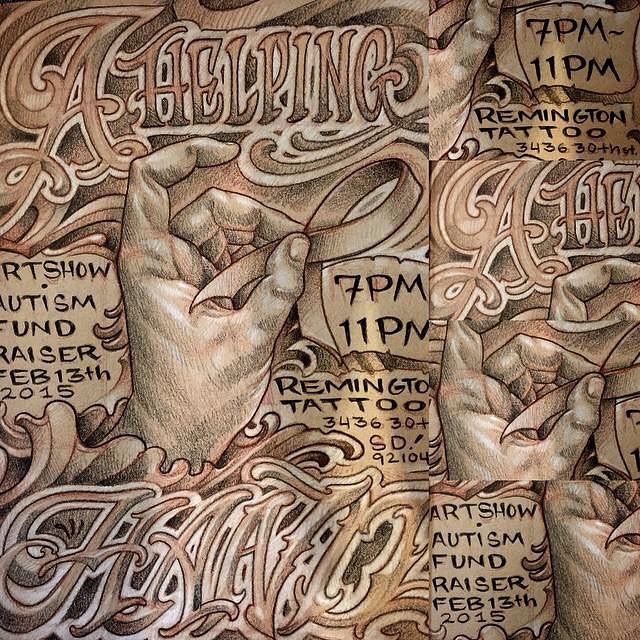 A HELPING
ARTSHOW
·
AUTISM
FUND
RAISER
FEB 13th
2015
7PM
11PM
REMINGTO
TATTOO
3436 30+
SD!
92104
HAND
7PM~
11PM
REMINGTON
TATTOO
3436 30th st.
A HE
ARTSHOW
·
AUTISM
FUND
RAISER
FEB 13th
2015